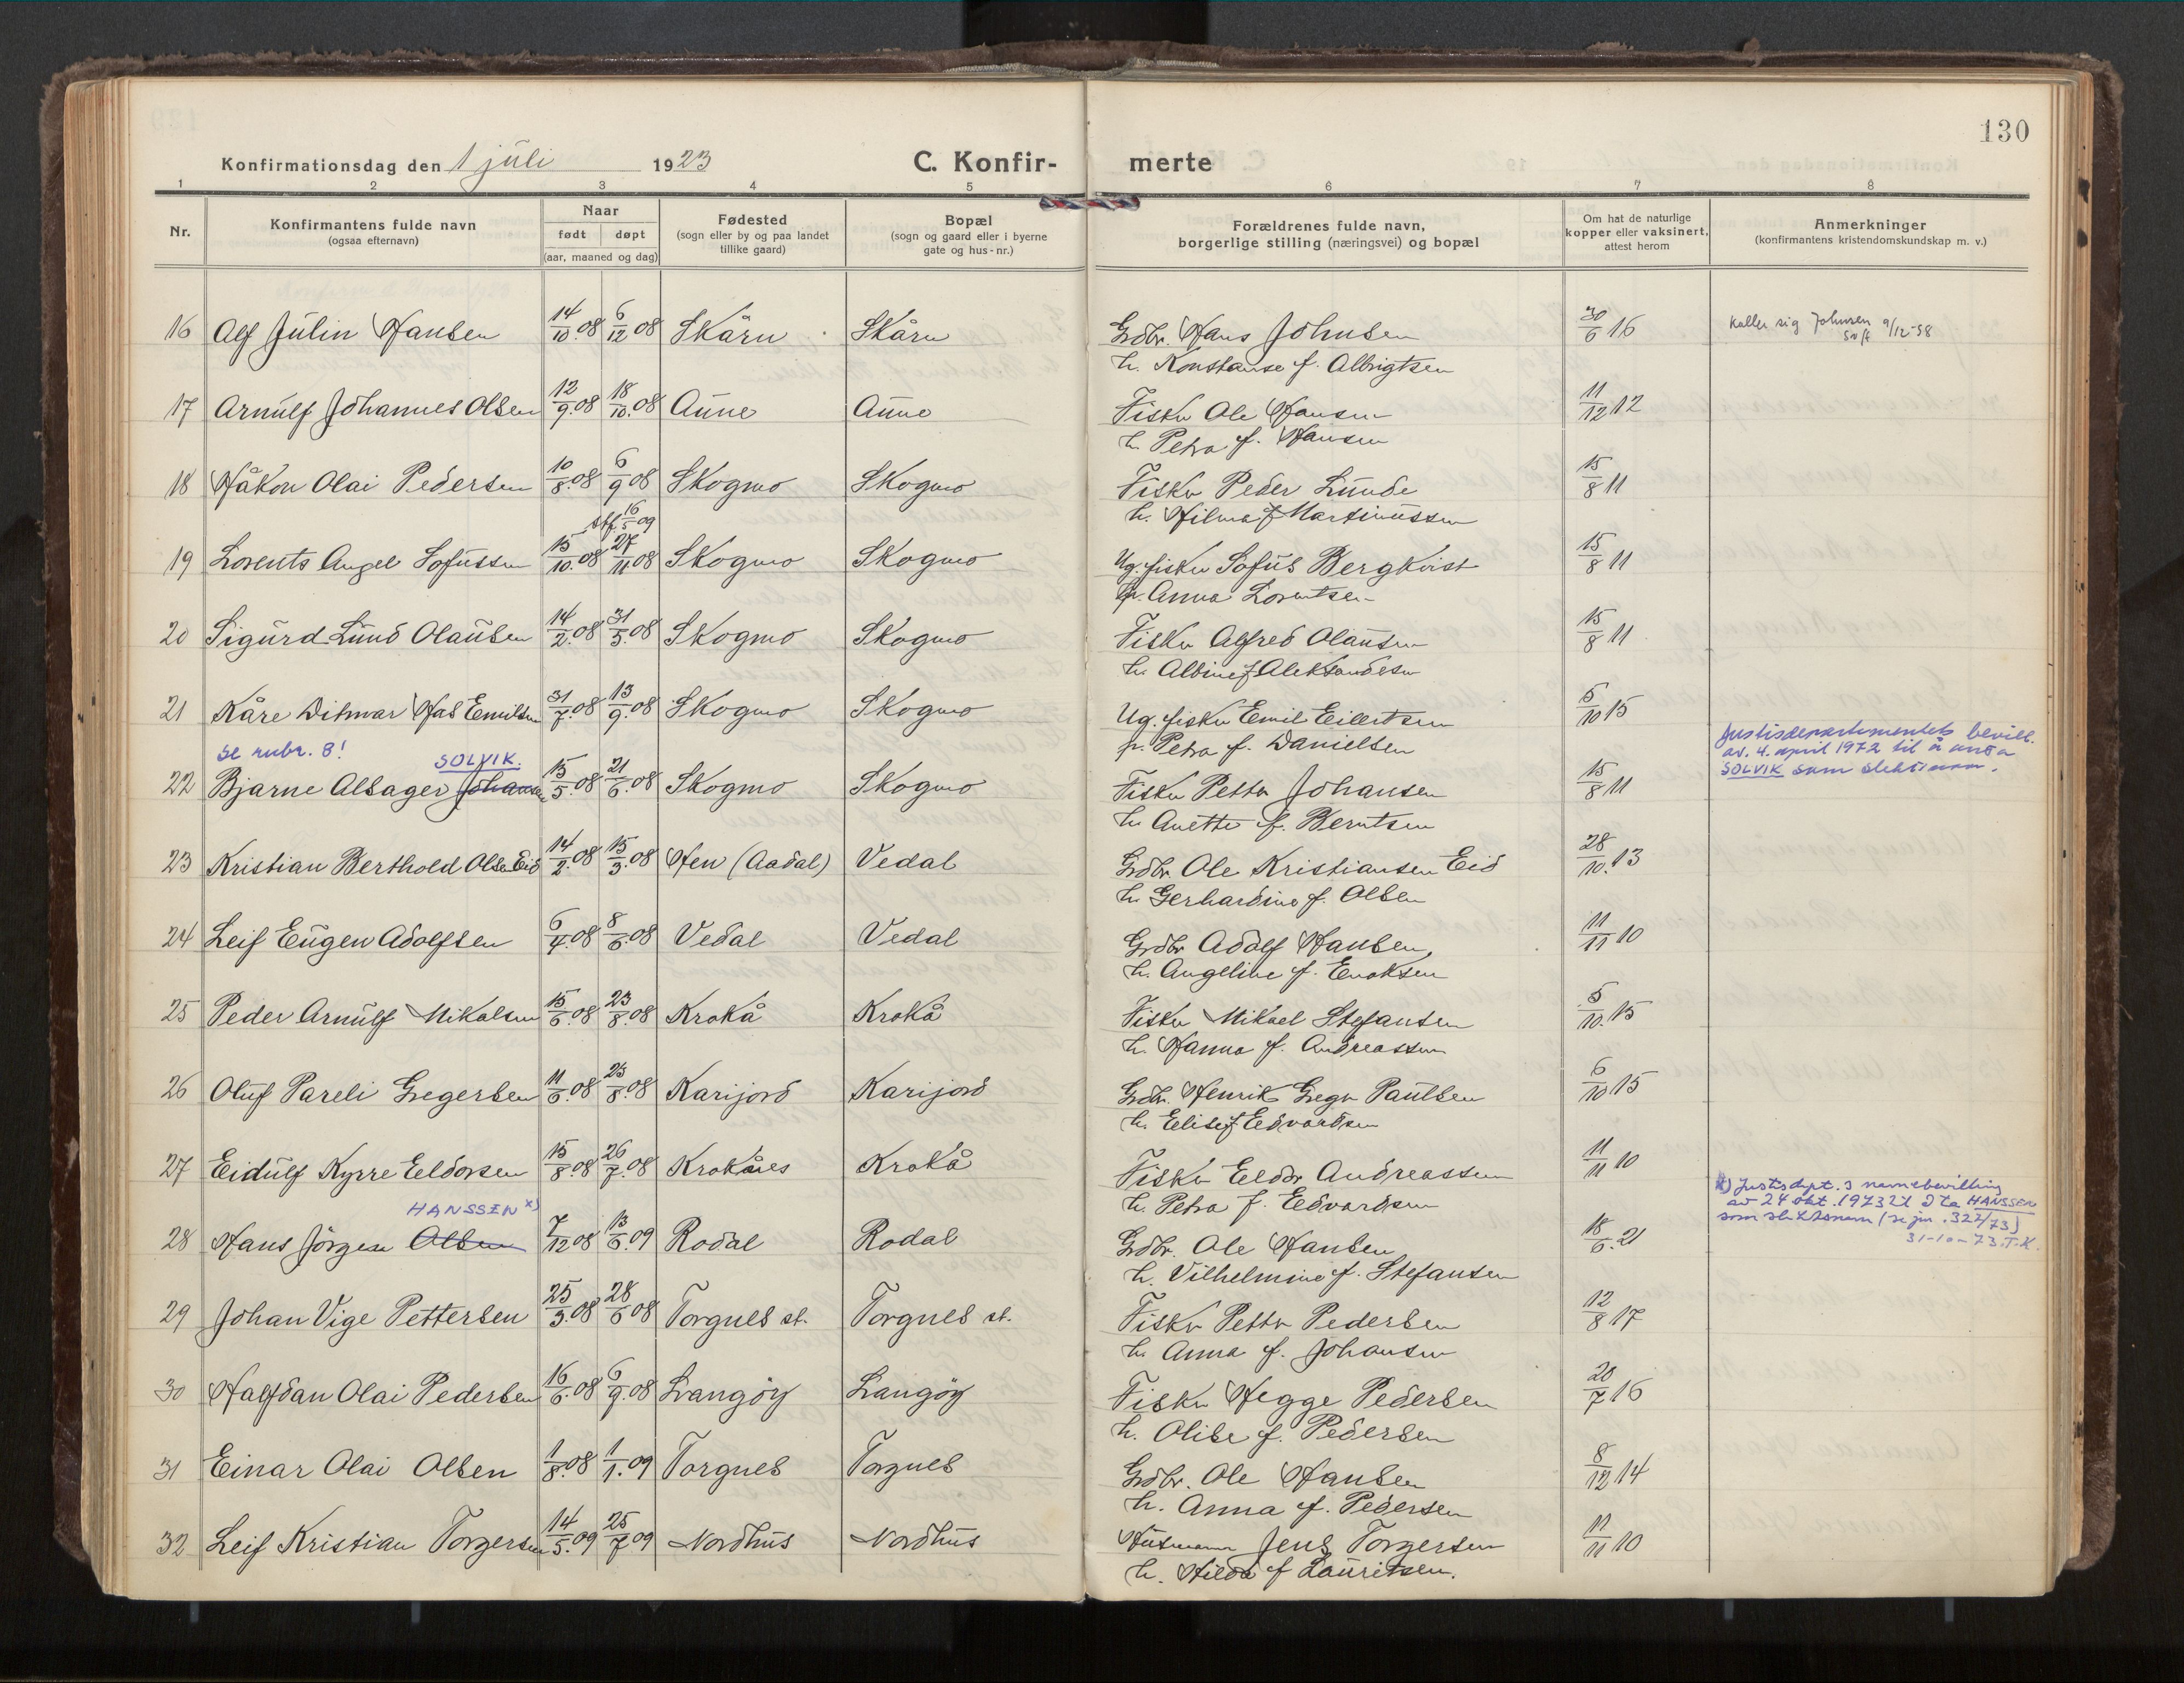 130
Konfirmationsdag den 1 juli 1923 C. Konfir- merte
1 2 3 4 5 6 7 8
Nr.
Konfirmantens fulde navn
(ogsaa efternavn)
Naar
født døpt
(aar, maaned og dag)
Fødested
(sogn eller by og paa landet
tillike gaard)
Bopæl
(sogn og gaard eller i byerne
gate og hus-nr.)
Forældrenes fulde navn,
borgerlige stilling (næringsvei) og bopæl
Om hat de naturlige
kopper eller vaksinert,
attest herom
Anmerkninger
(konfirmantens kristendomskundskap m. v.)
16 Alf Julin Hansen 14/10.08 6/12 08 Skårn Skårn Grdbr. Hans Johnsen 30/6 16 kaller sig Johnsen 9/12-58
h. Konstanse f. Albrigtsen
17 Arnulf Johannes Olsen 12/9.08 18/10.08 Aune Aune Fisker Ole Hansen 11/12 12
h. Petra f. Hansen
18 Håkon Olai Pedersen 10/8.08 6/9 08 Skogmo Skogmo Fisker Peder Lunde 15/8 11
h. Hilma f Martinussen
stf. 16/5 09
19 Lorents Angel Sofussen 15/10.08 27/11 08 Skogmo Skogmo Ug. fisker Sofus Bergkvist 15/8 11
p. Anna Lorentsen
20 Sigurd Lund Olausen 14/2.08 31/5.08 Skogmo Skogmo Fisker Alfred Olausen 15/8 11
h. Albine f Aleksandersen
21 Kåre Ditmar Has Emilsen 31/7.08 13/9.08 Skogmo Skogmo Ug. fisker Emil Eilertsen 5/10 15
p. Petra f. Danielsen
se rubr. 8! SOLVIK.
Justisdepartementets bevill.
av. 4. april 1972 til å anta
SOLVIK som slektsnavn.
22 Bjarne Alsager Johansen 15/5.08 21/6.08 Skogmo Skogmo Fisker Petter Johansen 15/8 11
h. Anette f. Berntsen
23 Kristian Berthold Olsen Eid 14/2.08 15/3.08 Hen (Aadal) Vedal Grdbr. Ole Kristiansen Eid 28/10.13
h. Gerhardine f. Olsen
24 Leif Eugen Adolfsen 6/4.08 8/6.08 Vedal Vedal Grdbr Adolf Hansen, 11/11 10
h. Angeline f. Enoksen
25 Peder Arnulf Mikalsen 15/6.08 23/8.08 Krokå Krokå Fisker Mikael Stefansen 5/10.15
h. Hanna f. Andreassen
26 Oluf Pareli Gregersen 11/6.08 23/8.08 Karijord Karijord Grdbr. Henrik Greger Paulsen 6/10 15
h. Elise f Edvardsen
27 Eidulf Kyrre Eldorsen 15/8.08 26/7.08 Kroknes Krokå Fisker Eldor Andreassen 11/11 10
h. Petra f. Edvardsen
HANSSEN x)
x) Justisdept. s navnebevilling
av 24 okt. 1973 til å ta HANSSEN
som slektsnavn (se jnr. 327/73)
31-10-73. T.K.
28 Hans Jörgen Olsen 7/12 08 13/6.09 Rodal Rodal Grdbr. Ole Hansen 18/6.21
h. Vilhelmine f. Stefansen
29 Johan Vige Pettersen 25/3.08 28/6 08 Torgnes st. Torgnes st. Fisker Petter Pedersen 12/8 17
h. Anna f. Johansen
30 Halfdan Olai Pedersen 16/6.08 6/9.08 Langöy Langöy Fisker Hegge Pedersen 20/7 16
h. Olise f. Pedersen
31 Einar Olai Olsen 1/8.08 1/1.09 Torgnes Torgnes Grdbr. Ole Hansen 8/12 14
h. Anna f. Pedersen
32 Leif Kristian Torgersen 14/5.09 25/7 09 Nordhus Nordhus Husmann Jens Torgersen 11/11 10
h. Hilda f Lauritsen.